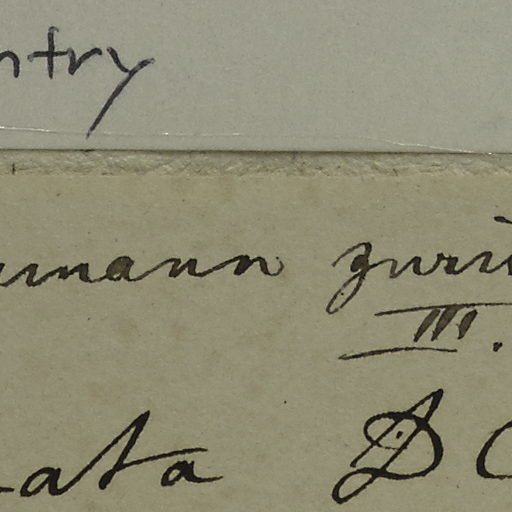 ntry
umann zurü
III.
ata D C